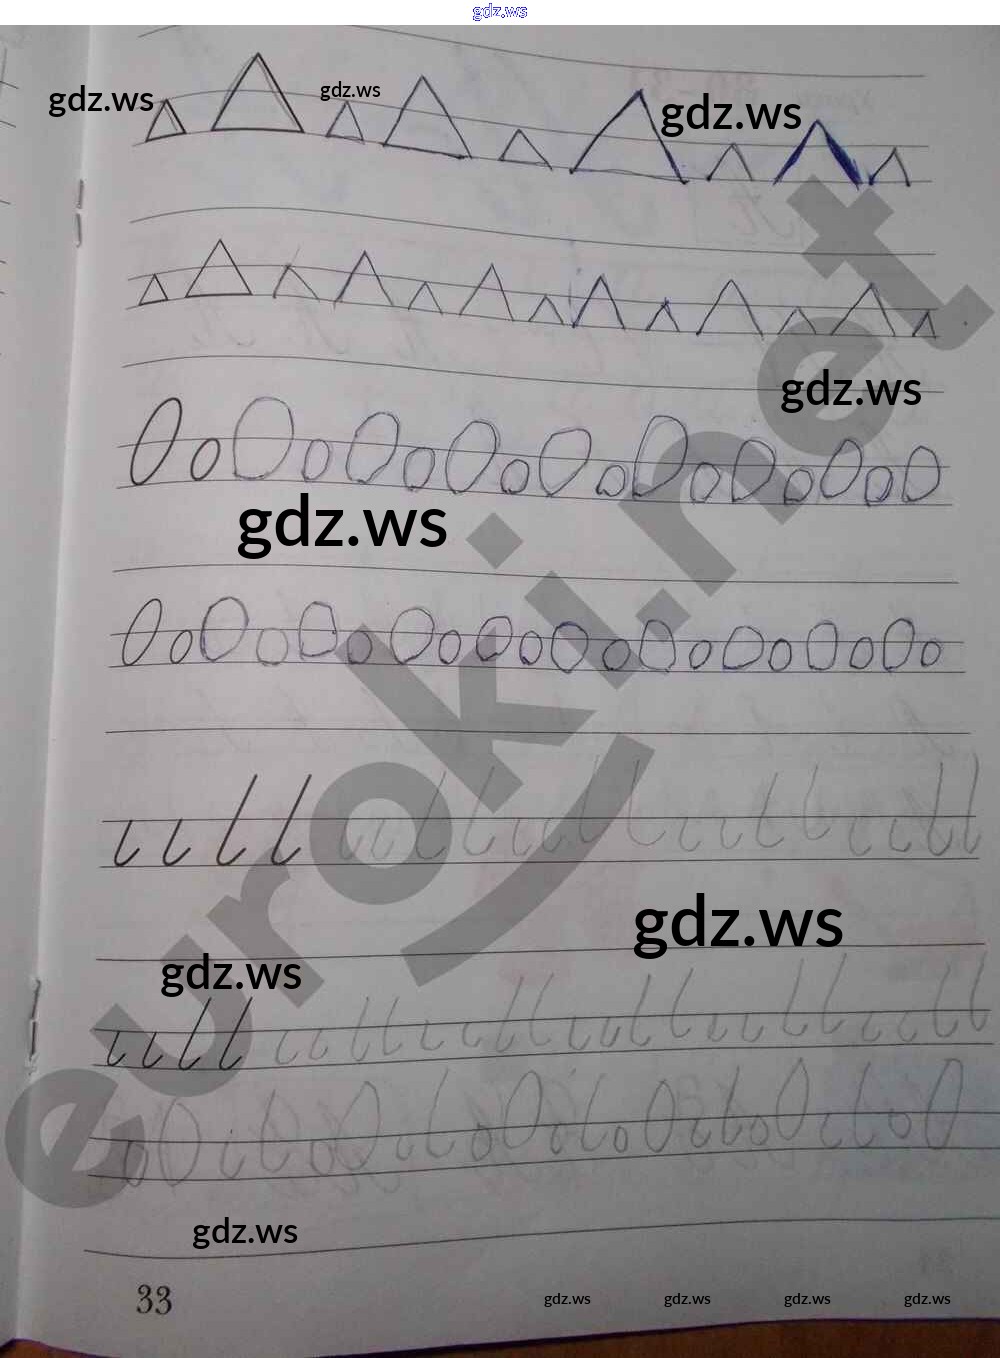 gdz.ws
gdz.ws
gdz.ws
gdz.ws
gdz.ws
gdz.ws
gdz.ws
gdz.ws
gdz.ws
euroki.net
33
gdz.ws
gdz.ws
gdz.ws
gdz.ws